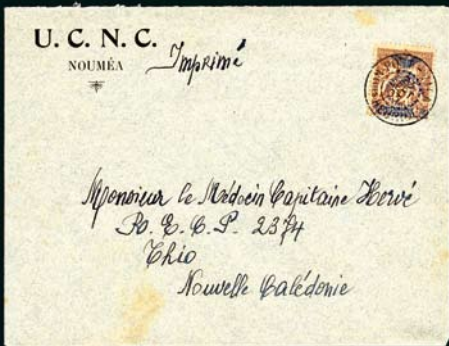 U. C. N. C.
NOUMÉA
Imprimé
Monsieur le Médecin Capitaine Hervé
P. E. C. P. 2374
Thio
Nouvelle Calédonie